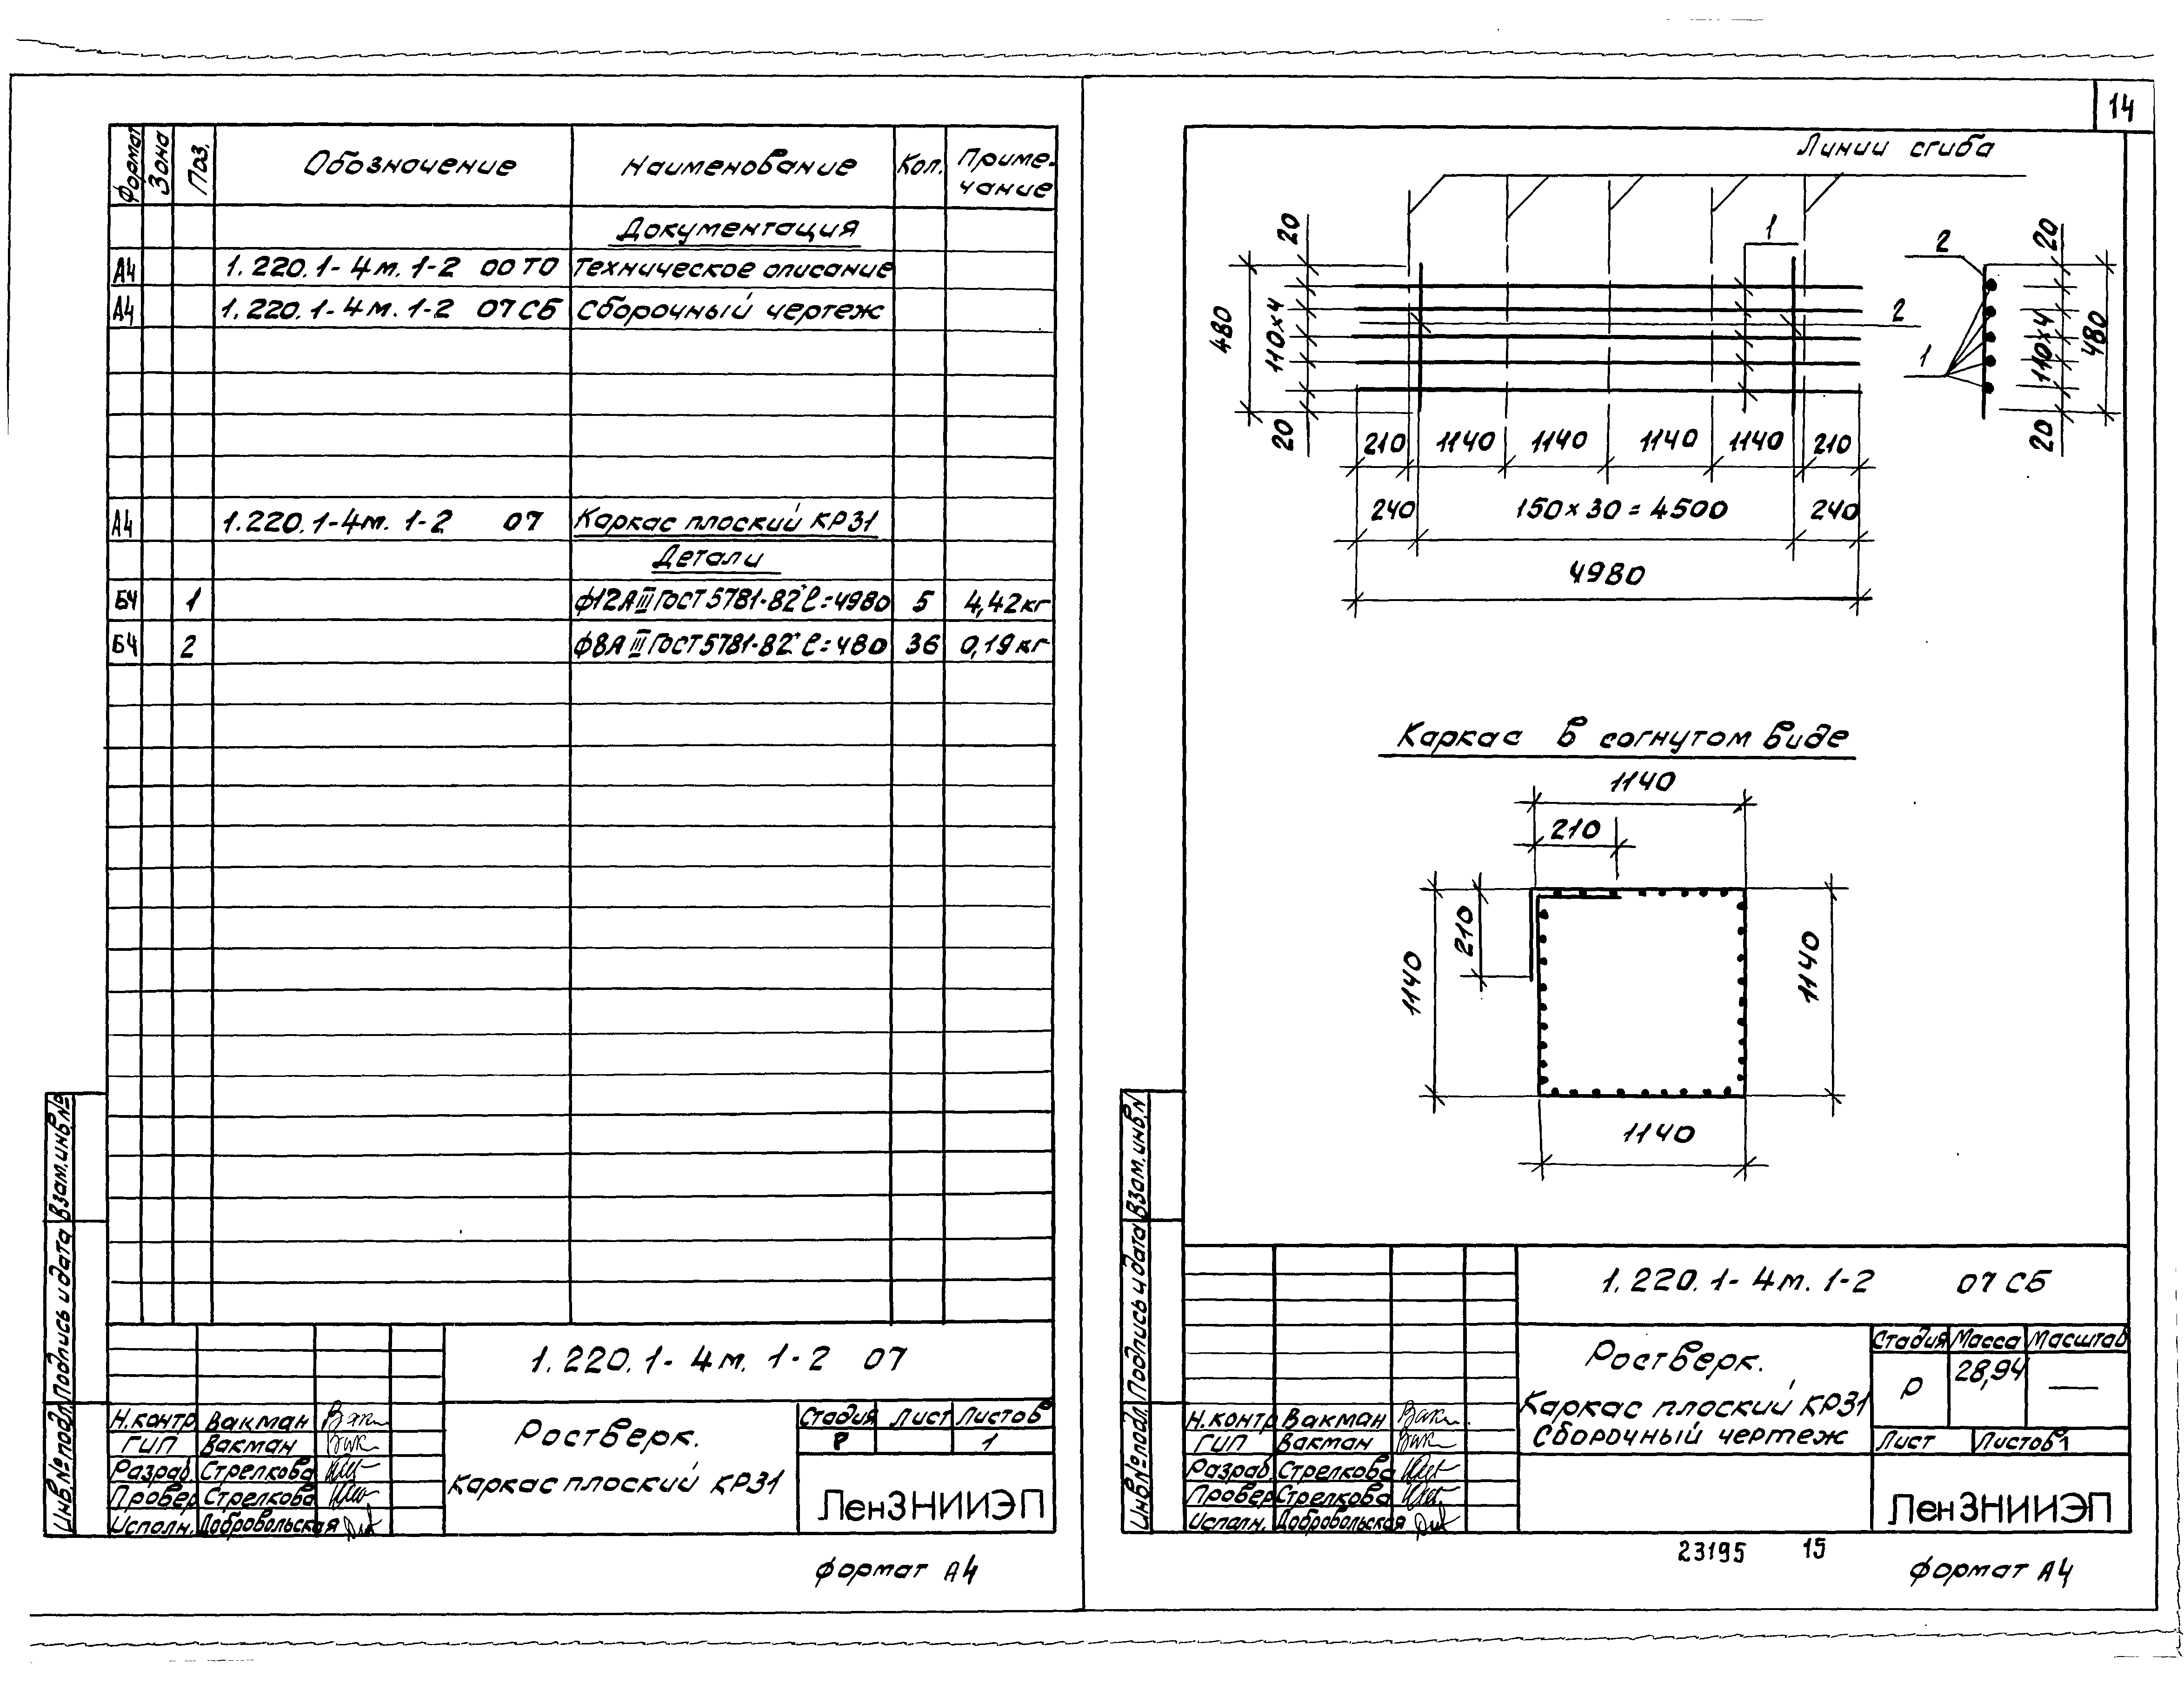 Формат Зона Поз. Обозначение Наименование Кол. Приме-
чание
Документация
А4 1.220.1-4м.1-2 00ТО Техническое описание
А4 1.220.1-4м.1-2 07СБ Сборочный чертеж
А4 1.220.1-4м.1-2 07 Каркас плоский КР31
Детали
БЧ 1 ф12АIII ГОСТ 5781-82* ℓ=4980 5 4,42кг
БЧ 2 ф8АIII ГОСТ 5781-82* ℓ=480 36 0,19кг
Инв.№ подл. Подпись и дата Взам.инв.№
1.220.1-4м.1-2 07
Н.контр Вакман
ГИП Вакман
Разраб. Стрелкова
Провер Стрелкова
Исполн. Добровольская
Ростверк.
Каркас плоский КР31
Стадия Лист Листов
Р 1
ЛенЗНИИЭП
формат А4
14
Линии сгиба
1
2
480
20
110х4
20
2
1
20
110х4
20
480
210 1140 1140 1140 1140 210
240 150х30=4500 240
4980
Каркас в согнутом виде
1140
210
1140
210
1140
1140
Инв.№ подл. Подпись и дата Взам.инв.N
1.220.1-4м.1-2 07СБ
Н.контр Вакман
ГИП Вакман
Разраб. Стрелкова
Провер Стрелкова
Исполн. Добровольская
Ростверк.
Каркас плоский КР31
Сборочный чертеж
Стадия Масса Масштаб
Р 28,94 —
Лист Листов 1
ЛенЗНИИЭП
23195 15
формат А4